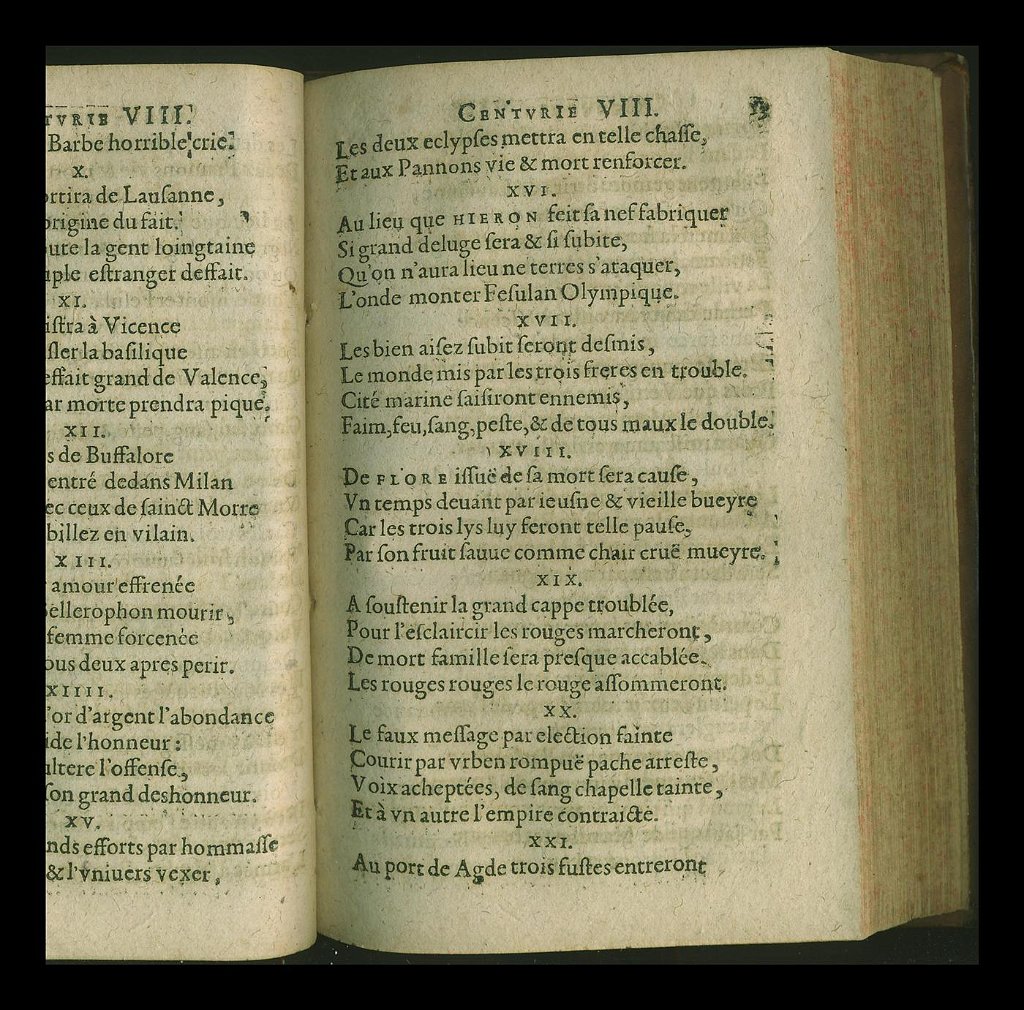 TVRIE VIII.
Barbe horrible crie.
X.
ortira de Lauſanne,
origine du fait.
ute la gent loingtaine
uple eſtranger deffait.
XI.
iſtra à Vicence
ſler la baſilique
effait grand de Valence,
ar morte prendra pique.
XII.
s de Buffalore
entré dedans Milan
ec ceux de ſainct Morre
billez en vilain.
XIII.
amour effrenée
ellerophon mourir,
femme forcenée
ous deux apres perir.
XIIII.
'or d'argent l'abondance
ide l'honneur:
ultere l'offenſe,
ſon grand deshonneur.
XV.
nds efforts par hommaſſe
& l'vniuers vexer,
CENTVRIE VIII.
Les deux eclypſes mettra en telle chaſſe,
Et aux Pannons vie & mort renforcer.
XVI.
Au lieu que HIERON feit ſa nef fabriquer
Si grand deluge ſera & ſi ſubite,
Qu'on n'aura lieu ne terres s'ataquer,
L'onde monter Feſulan Olympique.
XVII.
Les bien aiſez ſubit ſeront deſmis,
Le monde mis par les trois freres en trouble.
Cité marine ſaiſiront ennemis,
Faim, feu, ſang, peſte, & de tous maux le double.
XVIII.
De FLORE iſſuë de ſa mort ſera cauſe,
Vn temps deuant par ieuſne & vieille bueyre
Car les trois lys luy feront telle pauſe,
Par ſon fruit ſauue comme chair cruë mueyre.
XIX.
A ſouſtenir la grand cappe troublée,
Pour l'eſclaircir les rouges marcheront,
De mort famille ſera preſque accablée.
Les rouges rouges le rouge aſſommeront.
XX.
Le faux meſſage par election fainte
Courir par vrben rompuë pache arreſte,
Voix acheptées, de ſang chapelle tainte,
Et à vn autre l'empire contraicte.
XXI.
Au port de Agde trois fuſtes entreront